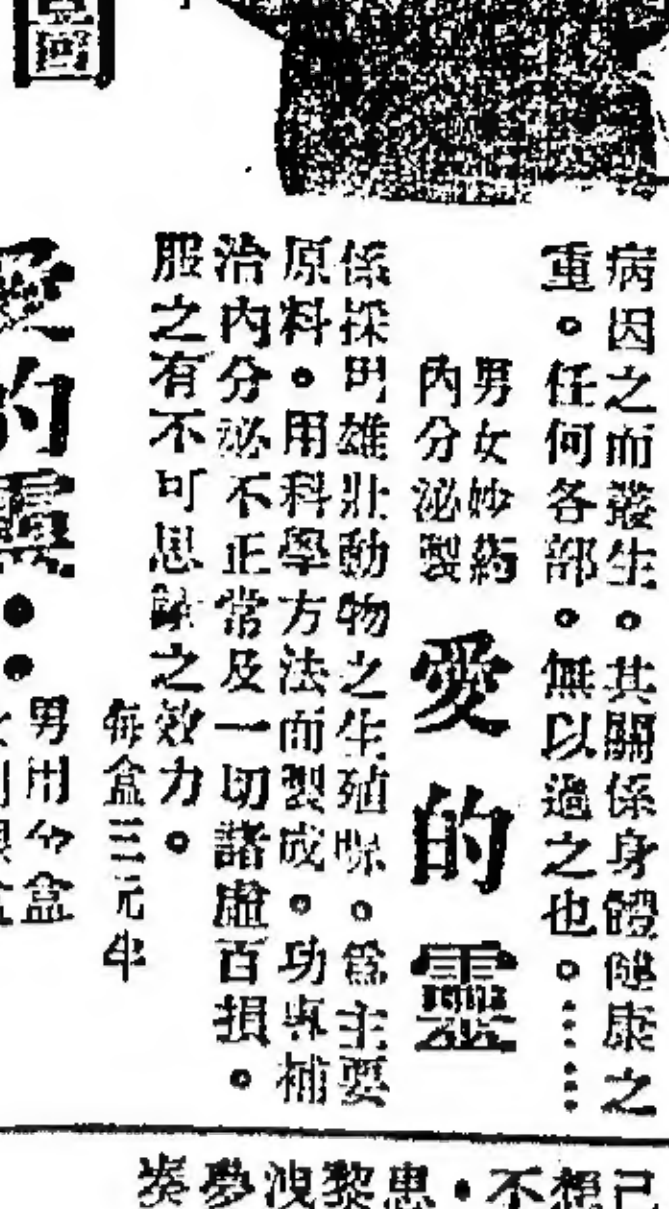 病因之而叢生。其關係身體健康之
重。任何各部。無以過之也。……
男女妙藥
內分泌製
愛的靈
係採用雄壯動物之生殖腺。為主要
原料。用科學方法而製成。功專補
治內分泌不正常及一切諸虛百損。
服之有不可思議之效力。
每盒三元半
愛的靈
男用今盒